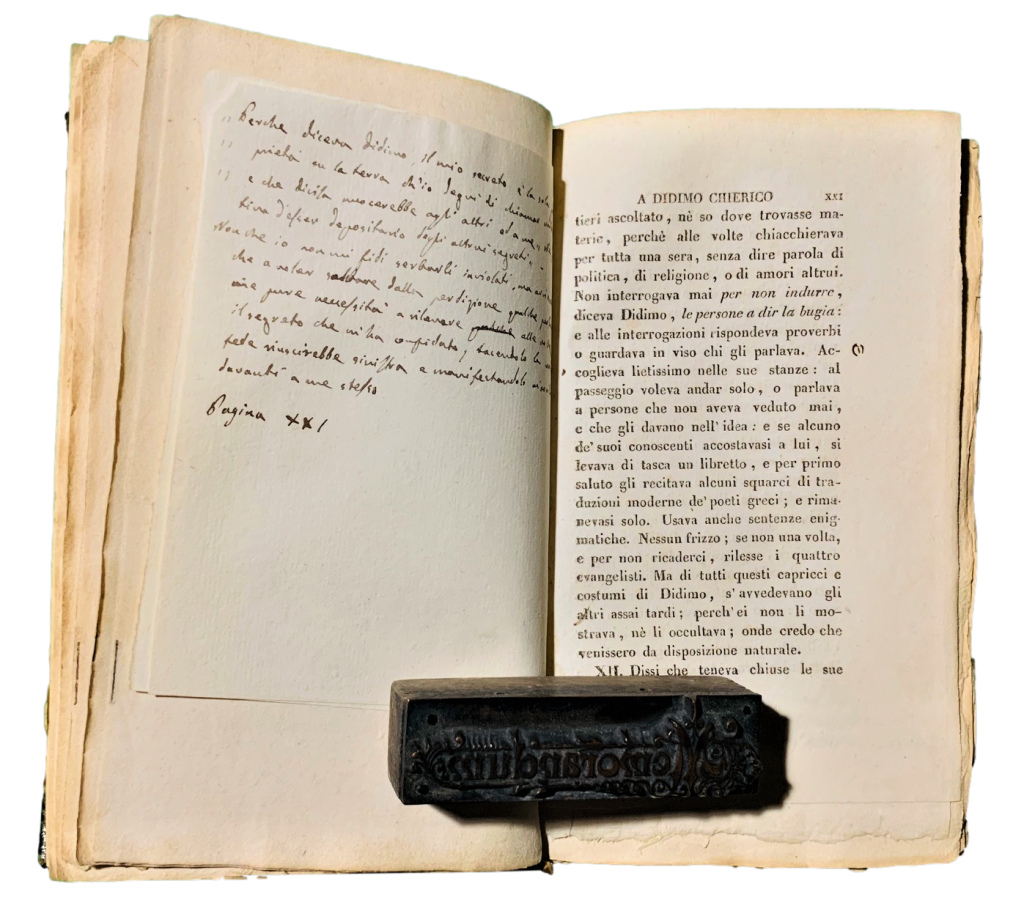 „ Perche diceva Didimo, il mio secreto è la sola
„ pietà su la terra ch'io degni di chiamar
„ e che divisa nuocerebbe agli altri ed a me;
tiva d'esser depositario degli altrui segreti, –
Non che io non mi fidi serbarli inviolati, ma
che a voler salvare dalla perdizione qualche
mia pure necessità a rilevare alle
il segreto che m'ha confidato; tacendolo la
fede riuscirebbe sinistra e manifestandolo
davanti a me stesso
Pagina XXI
A DIDIMO CHIERICO XXI
tieri ascoltato, nè so dove trovasse ma-
terie, perchè alle volte chiacchierava
per tutta una sera, senza dire parola di
politica, di religione, o di amori altrui.
Non interrogava mai per non indurre,
diceva Didimo, le persone a dir la bugia:
e alle interrogazioni rispondeva proverbi
o guardava in viso chi gli parlava. Ac-
coglieva lietissimo nelle sue stanze: al
passeggio voleva andar solo, o parlava
a persone che non aveva veduto mai,
e che gli davano nell'idea: e se alcuno
de'suoi conoscenti accostavasi a lui, si
levava di tasca un libretto, e per primo
saluto gli recitava alcuni squarci di tra-
duzioni moderne de'poeti greci; e rima-
nevasi solo. Usava anche sentenze enig-
matiche. Nessun frizzo; se non una volta,
e per non ricaderci, rilesse i quattro
evangelisti. Ma di tutti questi capricci e
costumi di Didimo, s'avvedevano gli
altri assai tardi; perch'ei non li mo-
strava, nè li occultava; onde credo che
venissero da disposizione naturale.
XII. Dissi che teneva chiuse le sue
Memorandum